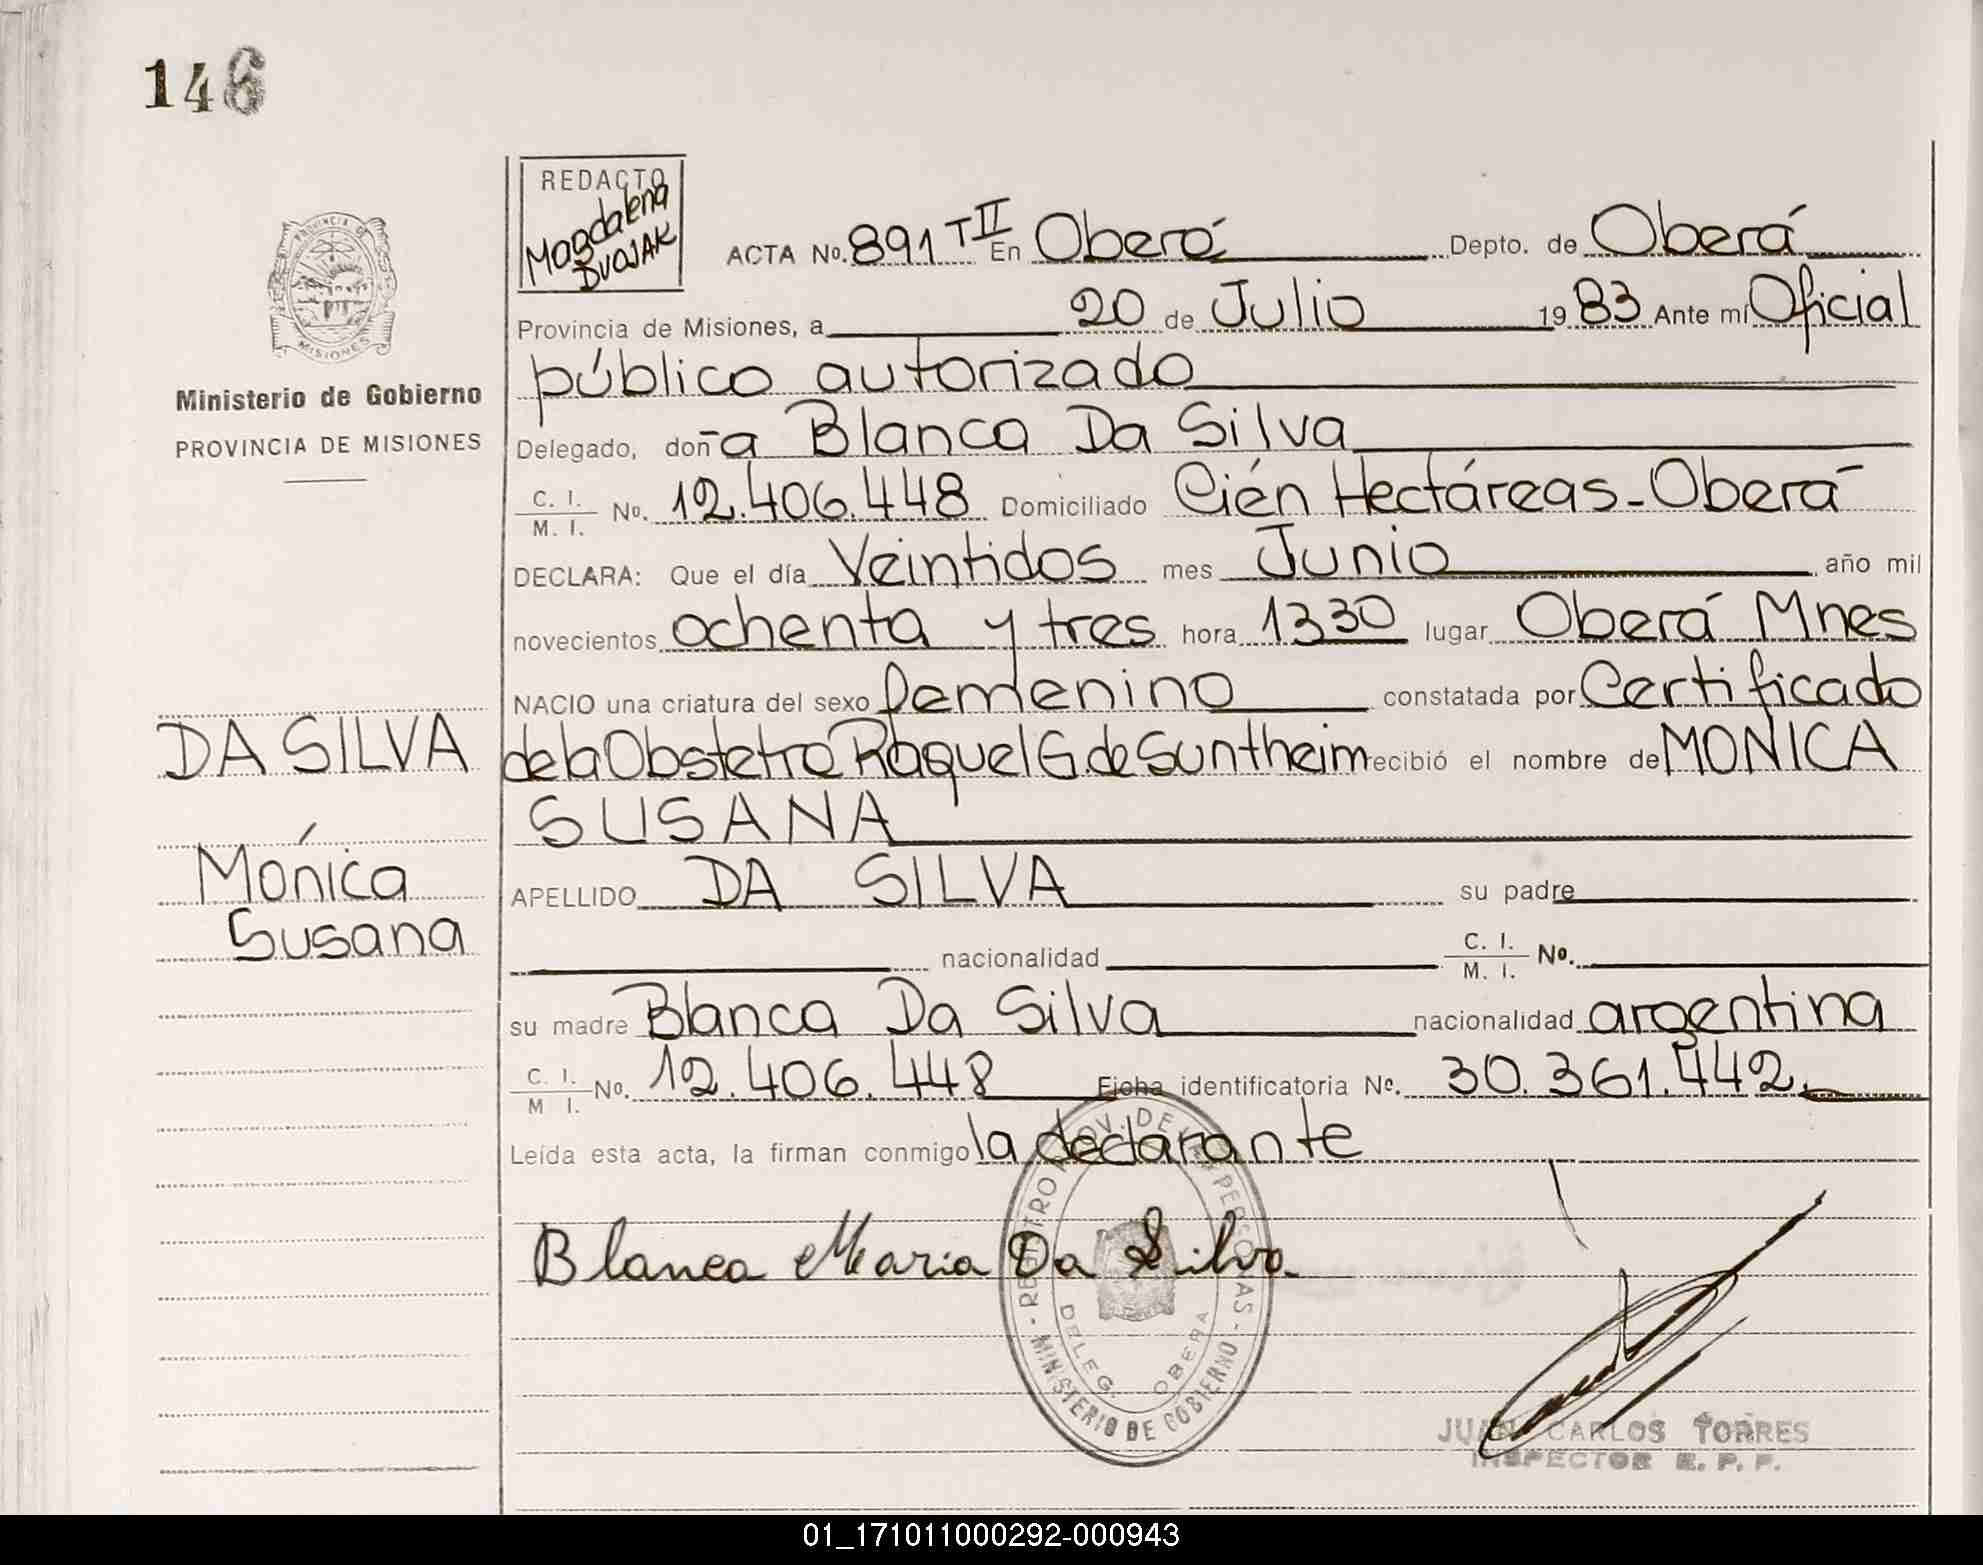 146
REDACTO
Magdalena
DVOJAK
ACTA No. 891 T II En Oberá Depto. de Oberá
Provincia de Misiones, a 20 de Julio 1983 Ante mi Oficial
público autorizado
Ministerio de Gobierno
PROVINCIA DE MISIONES
Delegado, doña Blanca Da Silva
C. I. M. I. No. 12.406.448 Domiciliado Cién Hectáreas-Oberá
DECLARA: Que el día Veintidos mes Junio año mil
novecientos ochenta y tres hora 1330 lugar Oberá Mnes
NACIO una criatura del sexo femenino constatada por Certificado
de la Obstetra Raquel G. de Suntheim recibió el nombre de MONICA
SUSANA
DA SILVA
Mónica
Susana
APELLIDO DA SILVA su padre
nacionalidad C. I. M. I. No.
su madre Blanca Da Silva nacionalidad argentina
C. I. M I. No. 12.406.448 Ficha identificatoria No. 30.361.442.
Leída esta acta, la firman conmigo la declarante
Blanca Maria Da Silva
REGISTRO PROV. DE LAS PERSONAS - MINISTERIO DE GOBIERNO -
DELEG. OBERA
JUAN CARLOS TORRES
INSPECTOR R. P. P.
PROVINCIA DE MISIONES
01_171011000292-000943